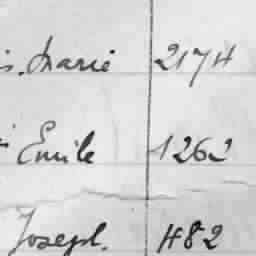 s. Marie 2174
Emile 1262
Joseph. 482